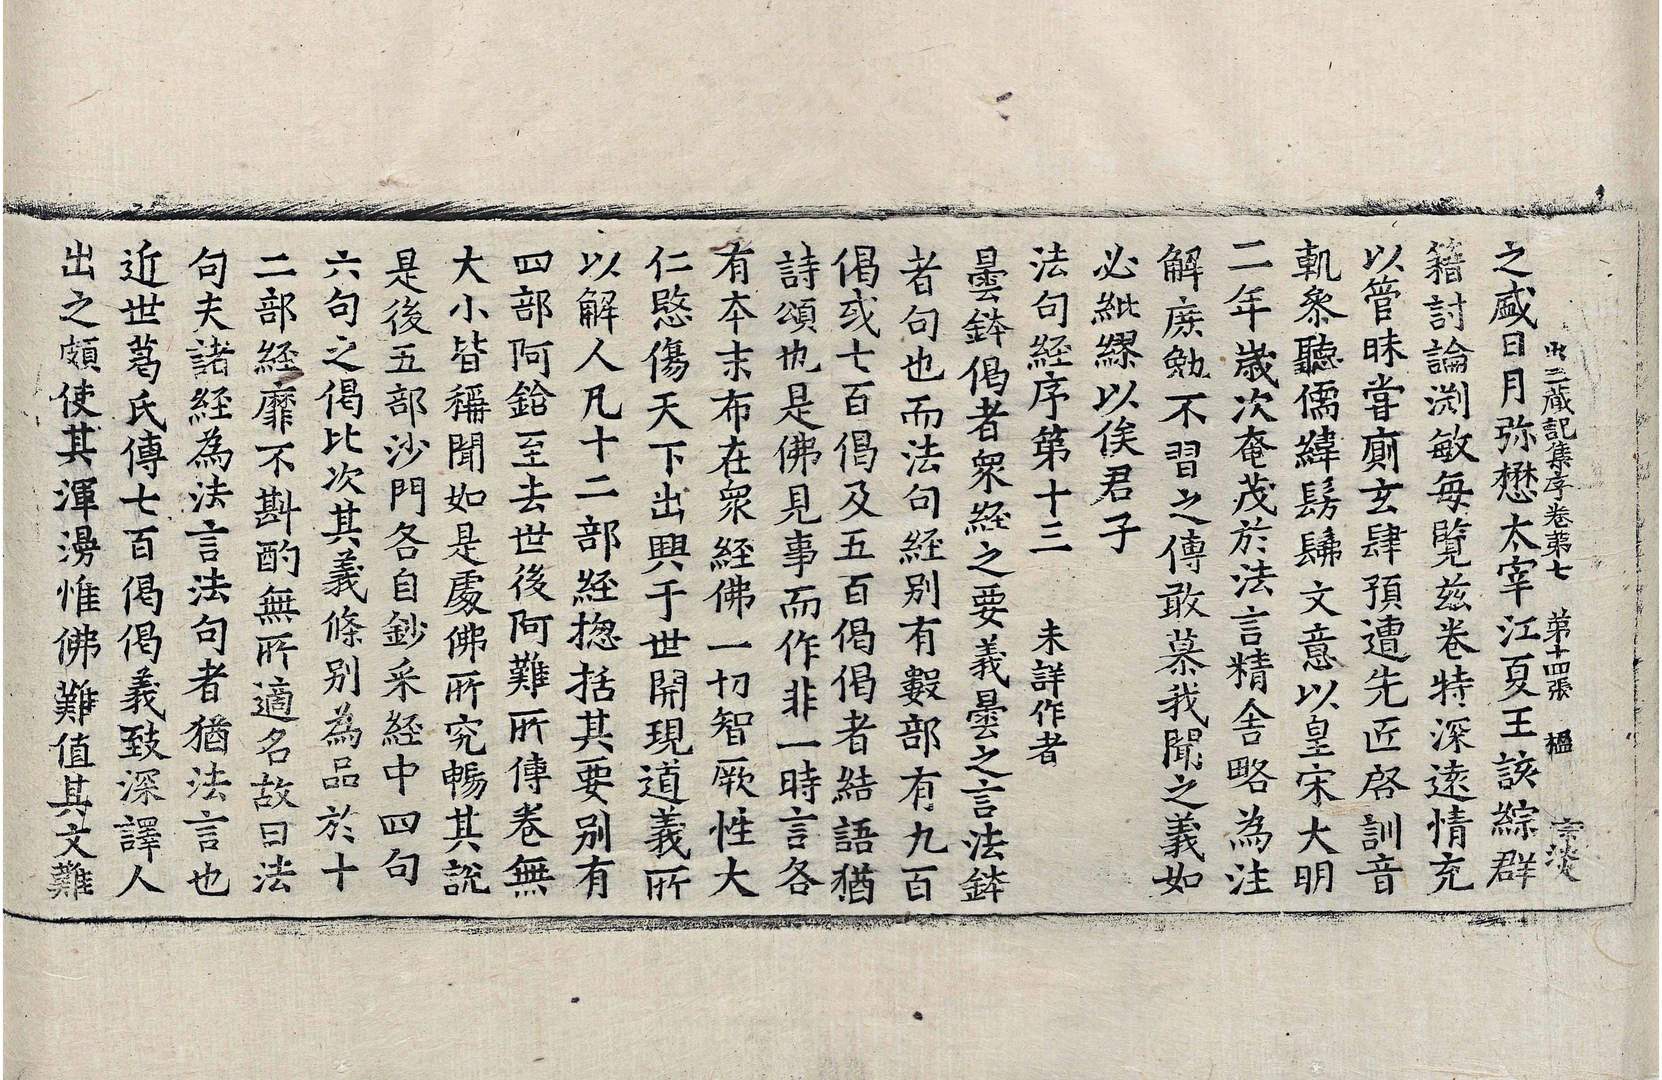 出三藏記集序卷第七　第十四張　楹　宗淡
之盛日月弥懋太宰江夏王該綜群
籍討論渕敏每覽茲卷特深遠情充
以管昧嘗廁玄肆預遭先匠啓訓音
軌叅聽儒緯髣髴文意以皇宋大明
二年歲次奄茂於法言精舍略為注
解庶勉不習之傳敢慕我聞之義如
必紕繆以俟君子
法句經序第十三　未詳作者
曇鉢偈者衆經之要義曇之言法鉢
者句也而法句經别有數部有九百
偈或七百偈及五百偈偈者結語猶
詩頌也是佛見事而作非一時言各
有本末布在衆經佛一切智厥性大
仁愍傷天下出興于世開現道義所
以解人凡十二部經揔括其要别有
四部阿鋡至去世後阿難所傳卷無
大小皆稱聞如是處佛所究暢其說
是後五部沙門各自鈔采經中四句
六句之偈比次其義條别為品於十
二部經靡不斟酌無所適名故曰法
句夫諸經為法言法句者猶法言也
近世葛氏傳七百偈偈義致深譯人
出之頗使其渾漫惟佛難值其文難